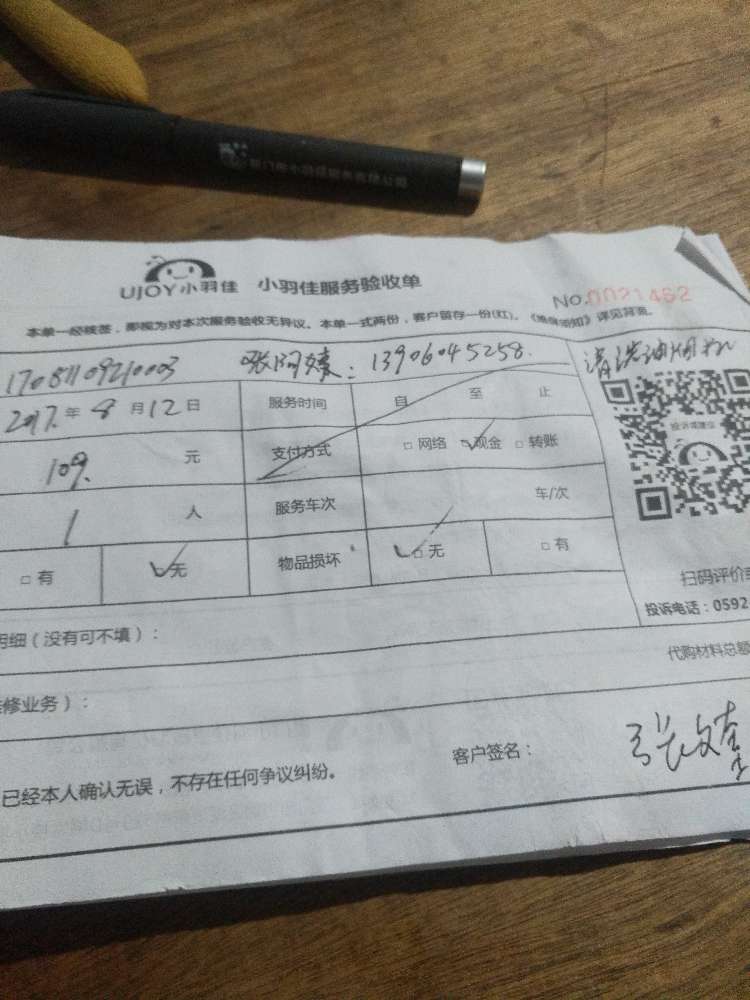 UJOY小羽佳 小羽佳服务验收单
No.0021462
本单一经核签，即视为对本次服务验收无异议。本单一式两份，客户留存一份(红)。《维保须知》详见背面。
13906045258.
清洗油烟机
2017.年 8 月 12 日 服务时间 自 至 止
109. 元 支付方式 □ 网络 □ 现金 □ 转账
1 人 服务车次 车/次
□ 有 □ 无 物品损坏 □ 无 □ 有
扫码评价
投诉电话：0592
明细（没有可不填）：
代购材料总额
维修业务）：
已经本人确认无误，不存在任何争议纠纷。 客户签名：